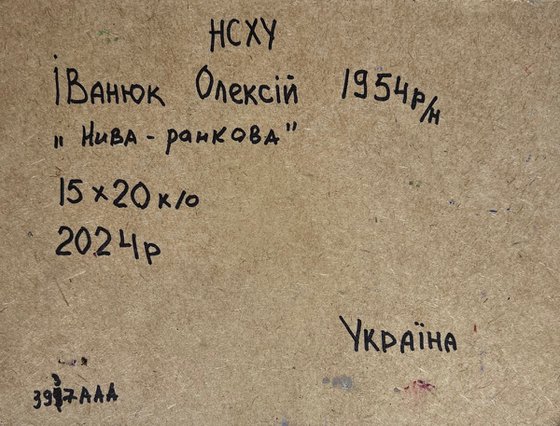 НСХУ
Іванюк Олексій 1954р/н
"Нива - ранкова"
15 x 20 к/о
2024р
Україна